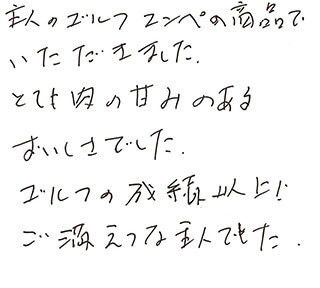 主人のゴルフコンペの商品で
いただきました.
とても肉の甘みのある
おいしさでした.
ゴルフの成績以上に
ご満えつな主人でした.